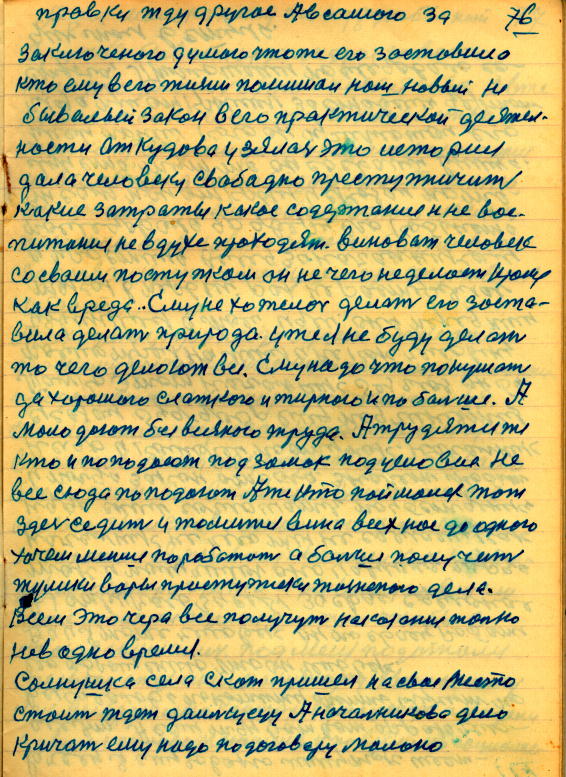 правки жду другое А всамого за 76
заключеного думаю что те его заставило
кто ему вего жизни помишал наш новый не
бывалый закон вего практической деятел-
ности Откудова узялас это история
дала человеку свабадно преступничит
какие затраты какое содержание и не вос-
питания не вдухе проходят. виноват человек
сосвоим поступком он не чего неделает кроме
как вреда.. Ему не хотелос делат его заста-
вила делат природа. уже я не буду делат
то чего делают все. Ему надо что покушат
да хорошого слаткого и жирного и по болше. А
мало дают без всякого труда. А трудяти же
кто и поподают под замок под условия не
все сюда поподают А те кто поймался тот
здес седит и томится вина всех нас до одного
хочем менш поработат а болш получит
жулики вары проступники тожнего дела.
Всем это чера все получут наказания толко
нев одно время.
Солнушка села скот пришел на свое место
стоит ждет даилкусцу А началникова дело
кричат ему надо подоговору малоко